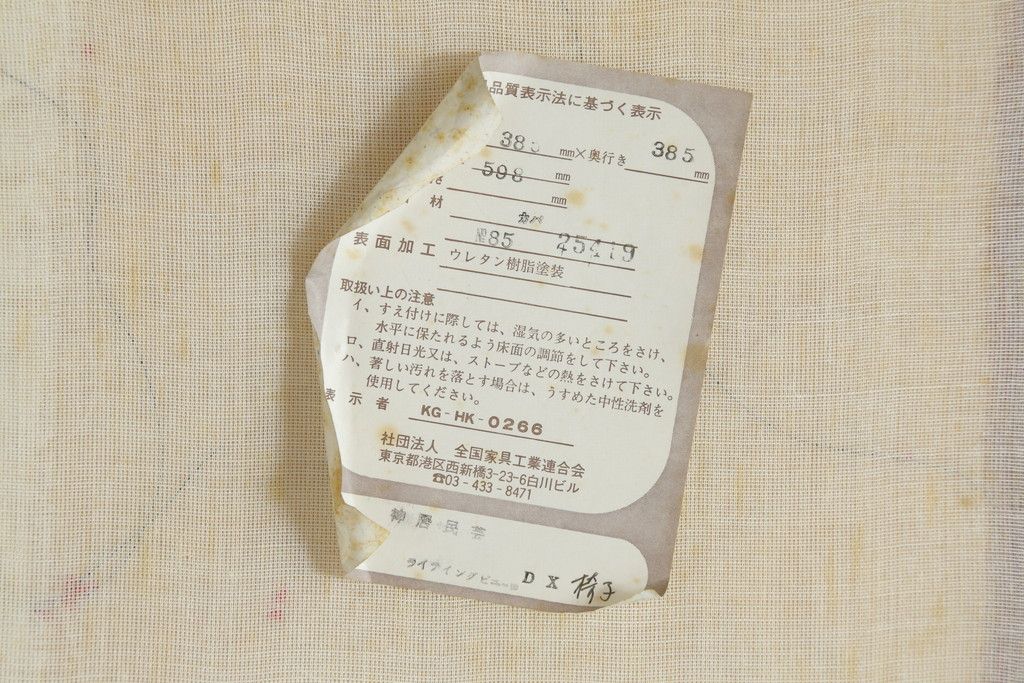 品質表示法に基づく表示
38 mm×奥行き 385 mm
598 mm
mm
材 カバ
№85 25419
表面加工 ウレタン樹脂塗装
取扱い上の注意
イ、すえ付けに際しては、湿気の多いところをさけ、
水平に保たれるよう床面の調節をして下さい。
ロ、直射日光又は、ストーブなどの熱をさけて下さい。
ハ、著しい汚れを落とす場合は、うすめた中性洗剤を
使用してください。
表示者 KG-HK-0266
社団法人 全国家具工業連合会
東京都港区西新橋3-23-6白川ビル
☎03-433-8471
民芸
ライティングビュー DX 椅子